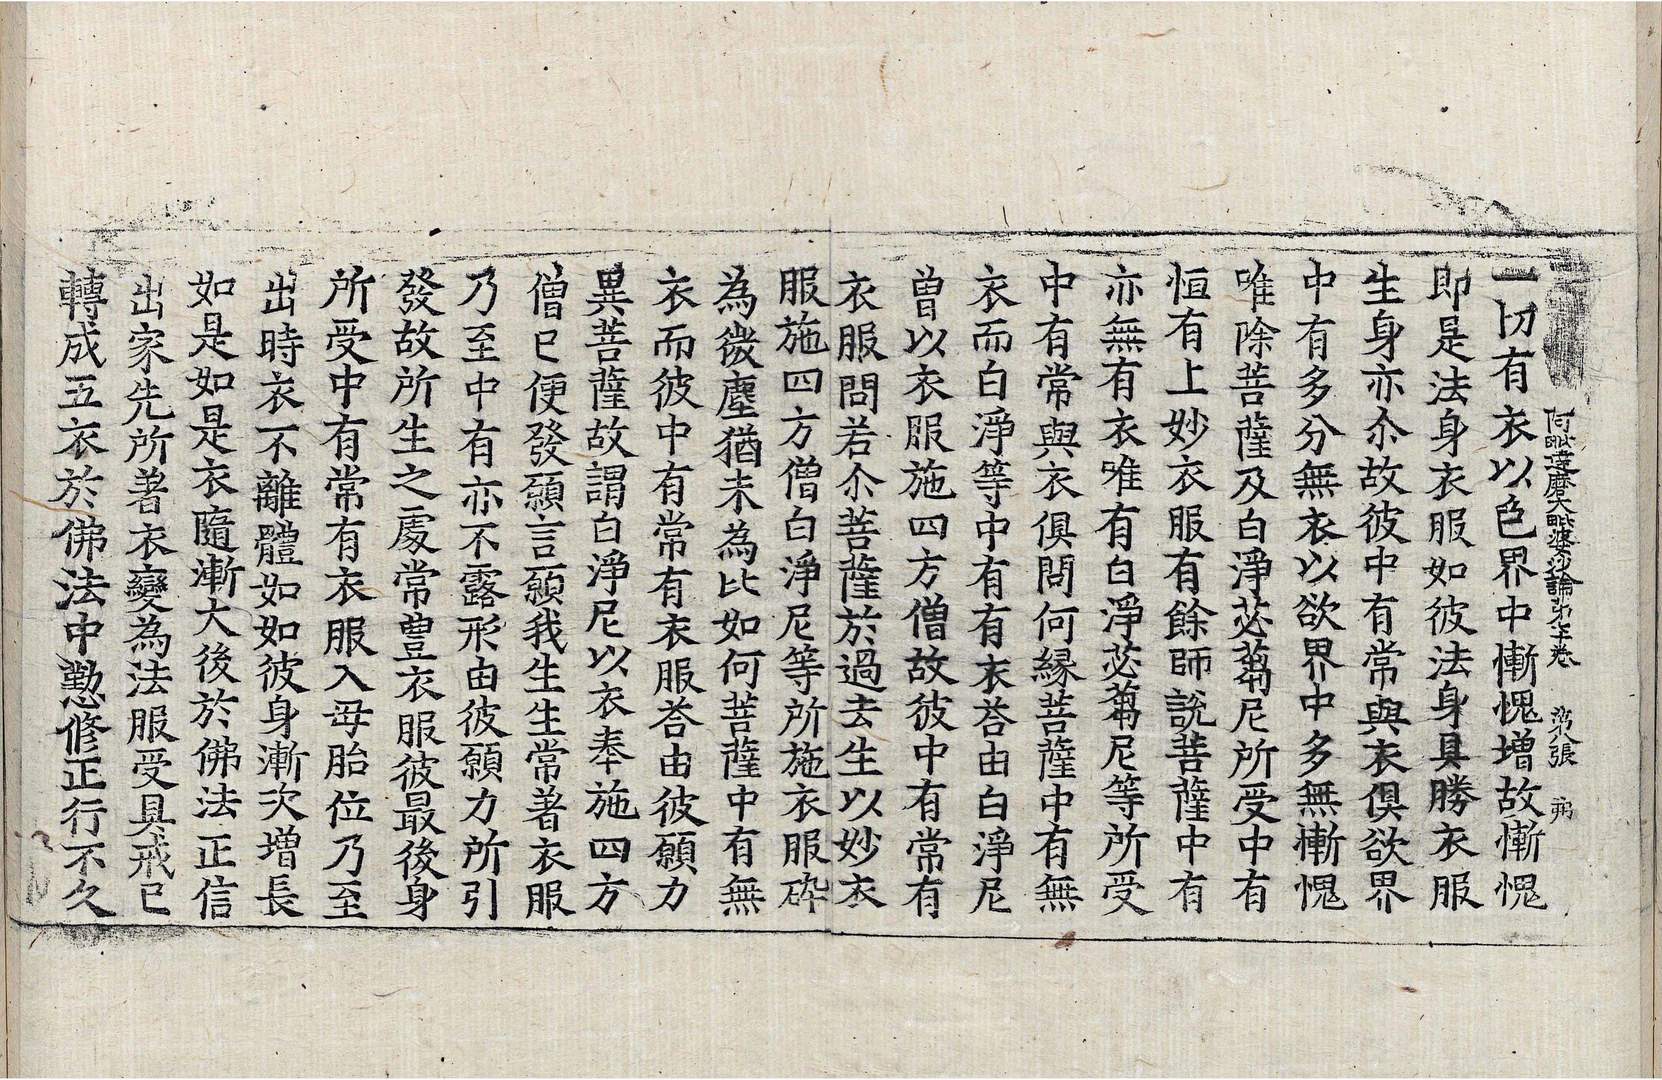 阿毗達磨大毗婆沙論第七十卷　張　弼
一切有衣以色界中慚愧增故慚愧
即是法身衣服如彼法身具勝衣服
生身亦尒故彼中有常與衣俱欲界
中有多分無衣以欲界中多無慚愧
唯除菩薩及白淨苾蒭尼所受中有
恒有上妙衣服有餘師說菩薩中有
亦無有衣唯有白淨苾蒭尼等所受
中有常與衣俱問何緣菩薩中有無
衣而白淨等中有有衣荅由白淨尼
曾以衣服施四方僧故彼中有常有
衣服問若尒菩薩於過去生以妙衣
服施四方僧白淨尼等所施衣服碎
為微塵猶未為比如何菩薩中有無
衣而彼中有常有衣服荅由彼願力
異菩薩故謂白淨尼以衣奉施四方
僧已便發願言願我生生常著衣服
乃至中有亦不露形由彼願力所引
發故所生之處常豊衣服彼最後身
所受中有常有衣服入母胎位乃至
出時衣不離體如如彼身漸次增長
如是如是衣隨漸大後於佛法正信
出家先所著衣變為法服受具戒已
轉成五衣於佛法中懃修正行不久